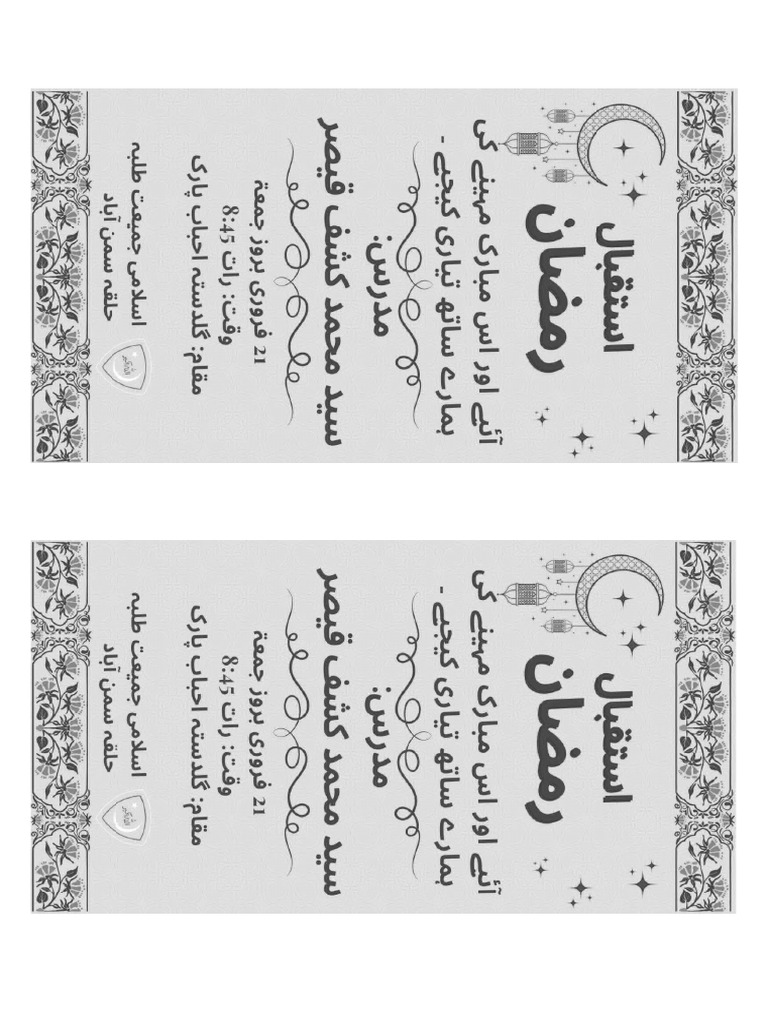 استقبال
رمضان
آئیے اور اس مبارک مہینے کی
ہمارے ساتھ تیاری کیجیے -
مدرس:
سید محمد کشف قیصر
21 فروری بروز جمعة
وقت: رات 8:45
مقام: گلدستہ احباب پارک
اسلامی جمیعت طلبہ
حلقہ سمن آباد
استقبال
رمضان
آئیے اور اس مبارک مہینے کی
ہمارے ساتھ تیاری کیجیے -
مدرس:
سید محمد کشف قیصر
21 فروری بروز جمعة
وقت: رات 8:45
مقام: گلدستہ احباب پارک
اسلامی جمیعت طلبہ
حلقہ سمن آباد